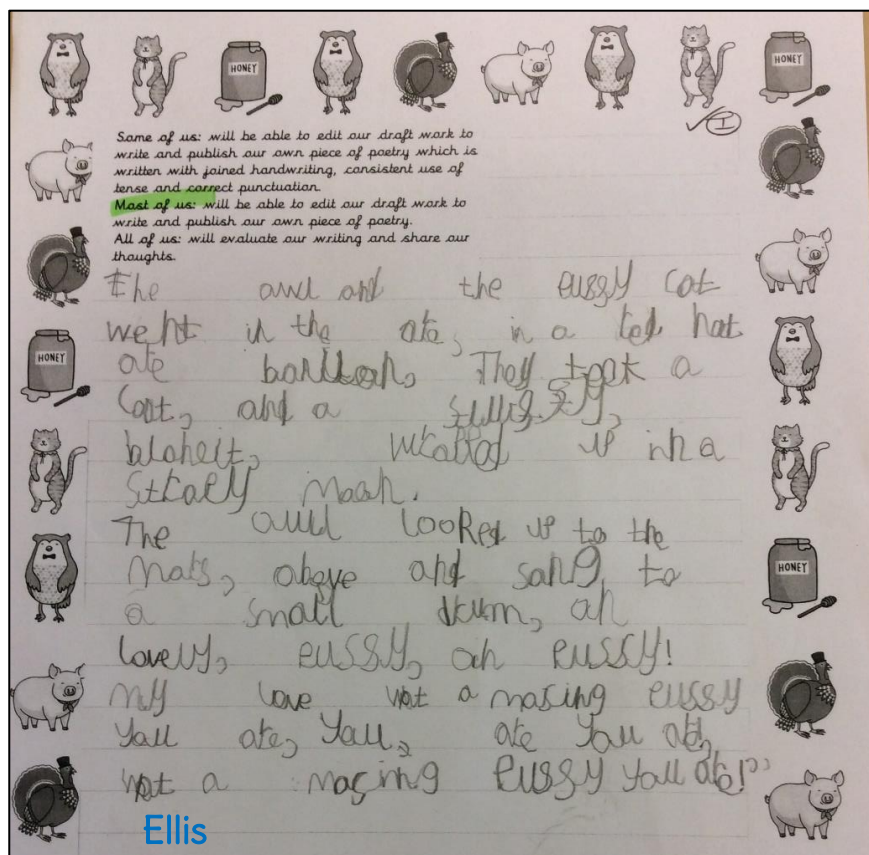 HONEY
HONEY
Some of us: will be able to edit our draft work to
write and publish our own piece of poetry which is
written with joined handwriting, consistent use of
tense and correct punctuation.
Most of us: will be able to edit our draft work to
write and publish our own piece of poetry.
All of us: will evaluate our writing and share our
thoughts.
The awl and the pussy cat
went in the are, in a hot
are They took a
Cat, and a
up in a
moon.
The awl looked up to the
above and sang to
a small drum, oh
lovely, pussy, oh pussy!
my love wot a masing pussy
Yall are, Yall, are Yall are,
wot a masing pussy yall are!"
HONEY
HONEY
Ellis